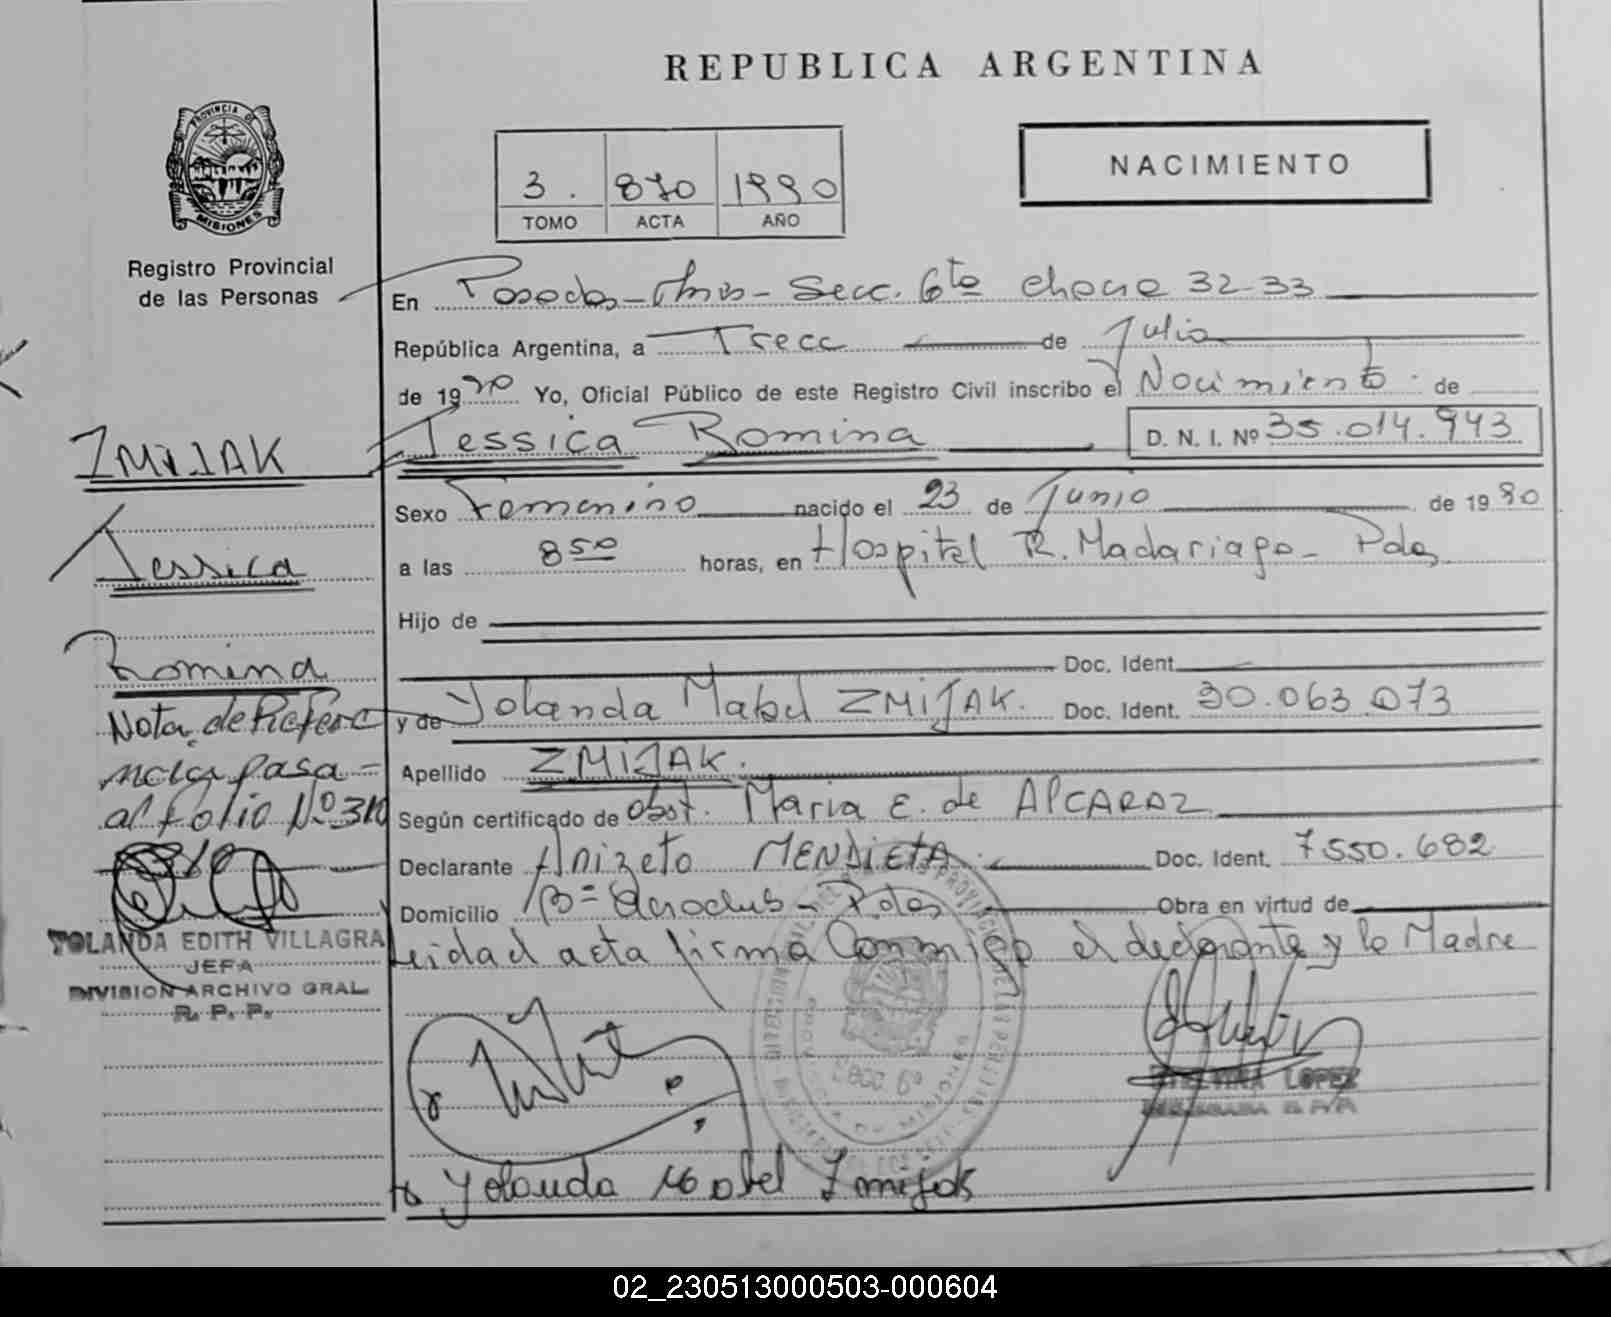 REPUBLICA ARGENTINA
PROVINCIA DE
MISIONES
Registro Provincial
de las Personas
3. 870 1990
TOMO ACTA AÑO
NACIMIENTO
En Posadas - Mnes - Secc. 6ta chacra 32-33
República Argentina, a Trece de Julio
de 1990 Yo, Oficial Público de este Registro Civil inscribo el Nacimiento de
Jessica Romina D. N. I. Nº 35.014.943
Sexo Femenino nacido el 23 de Junio de 1990
a las 8 50 horas, en Hospital R. Madariaga - Pdas
Hijo de
Doc. Ident.
y de Yolanda Mabel ZMIJAK. Doc. Ident. 30.063.073
Apellido ZMIJAK.
Según certificado de obst. Maria E. de ALCARAZ
Declarante Anizeto MENDIETA Doc. Ident. 7550.682
Domicilio Bº= Aeroclub - Pdas Obra en virtud de
Leida el acta firma Conmigo el declarante y la Madre
Yolanda Mabel Zmijak
ZMIJAK
Jessica
Romina
Nota de Refere
ncia pasa -
al folio Nº 310
YOLANDA EDITH VILLAGRA
JEFA
DIVISION ARCHIVO GRAL.
R. P. P.
SECC. 6º
LOPEZ
02_230513000503-000604